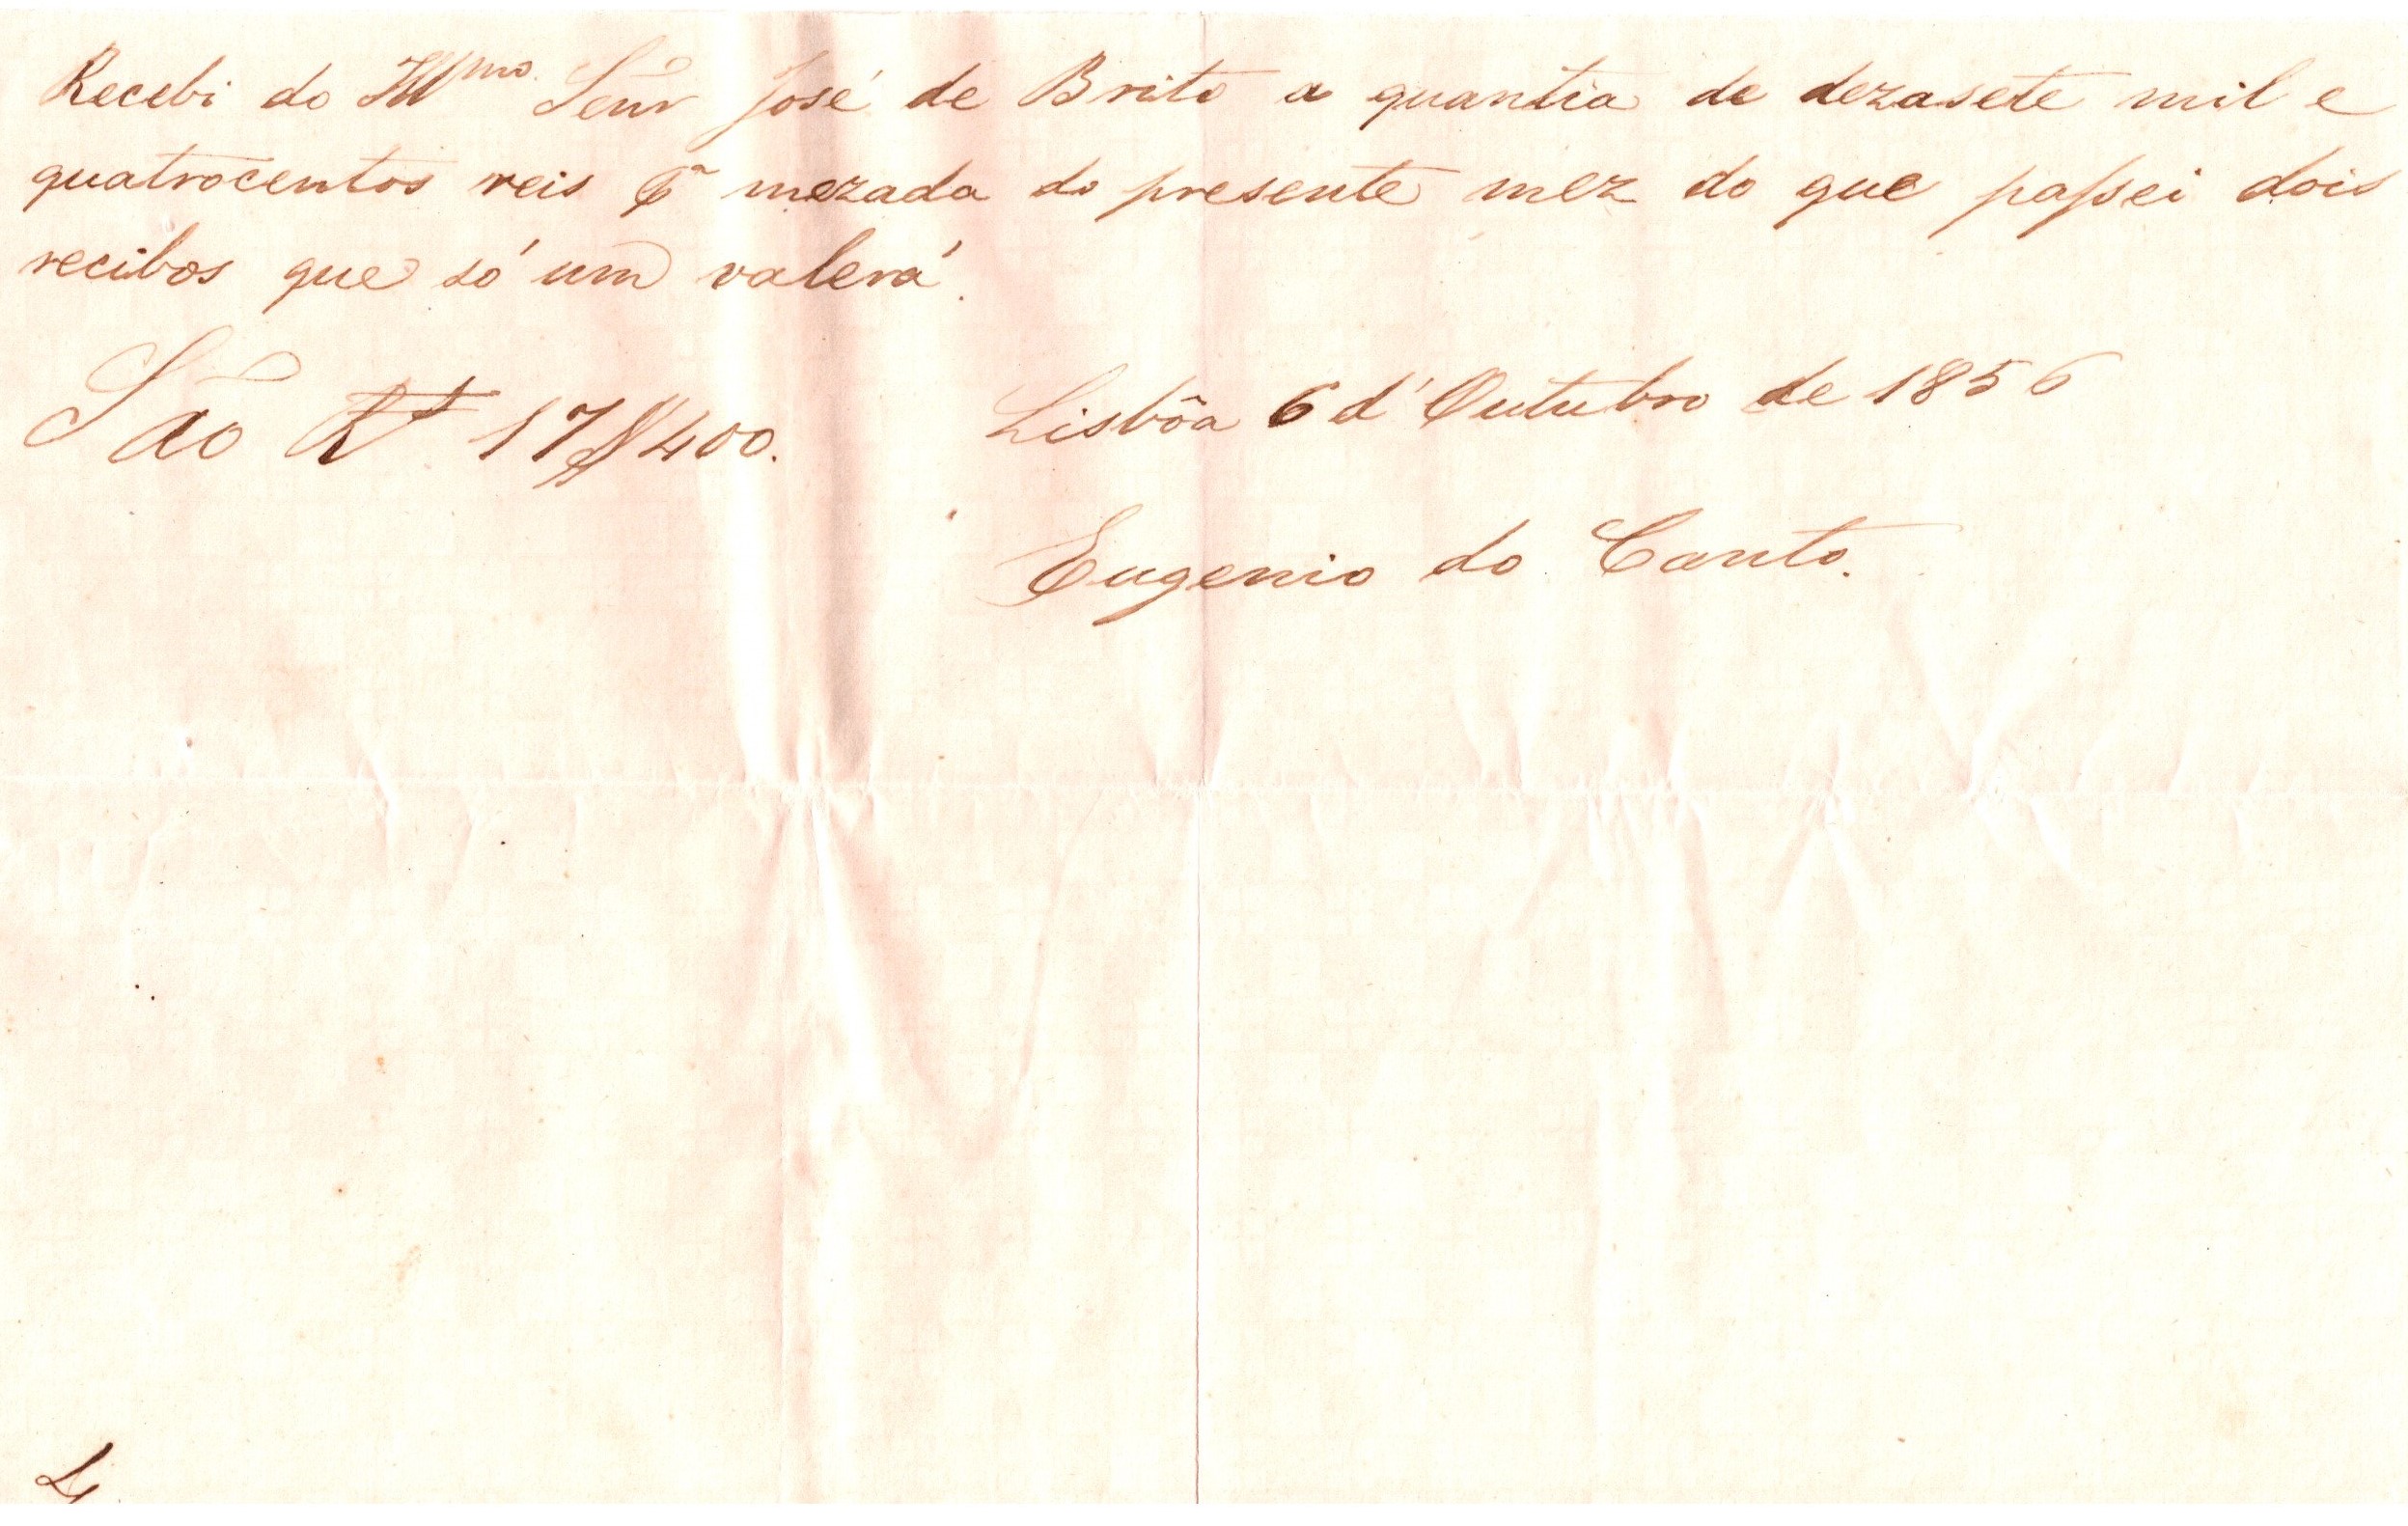 Recebi do Illmo. Senr José de Brito a quantia de dezasete mil e
quatrocentos reis mezada do presente mez do que passei dois
recibos que só um valerá.
São Rs 17$400. Lisbôa 6 d'Outubro de 1856
Eugenio do Canto.